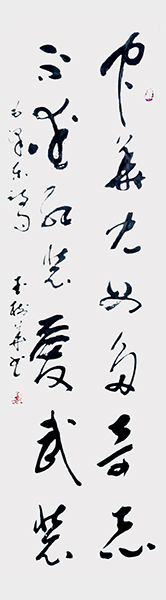 中华儿女多奇志
不爱红装爱武装
毛泽东诗句